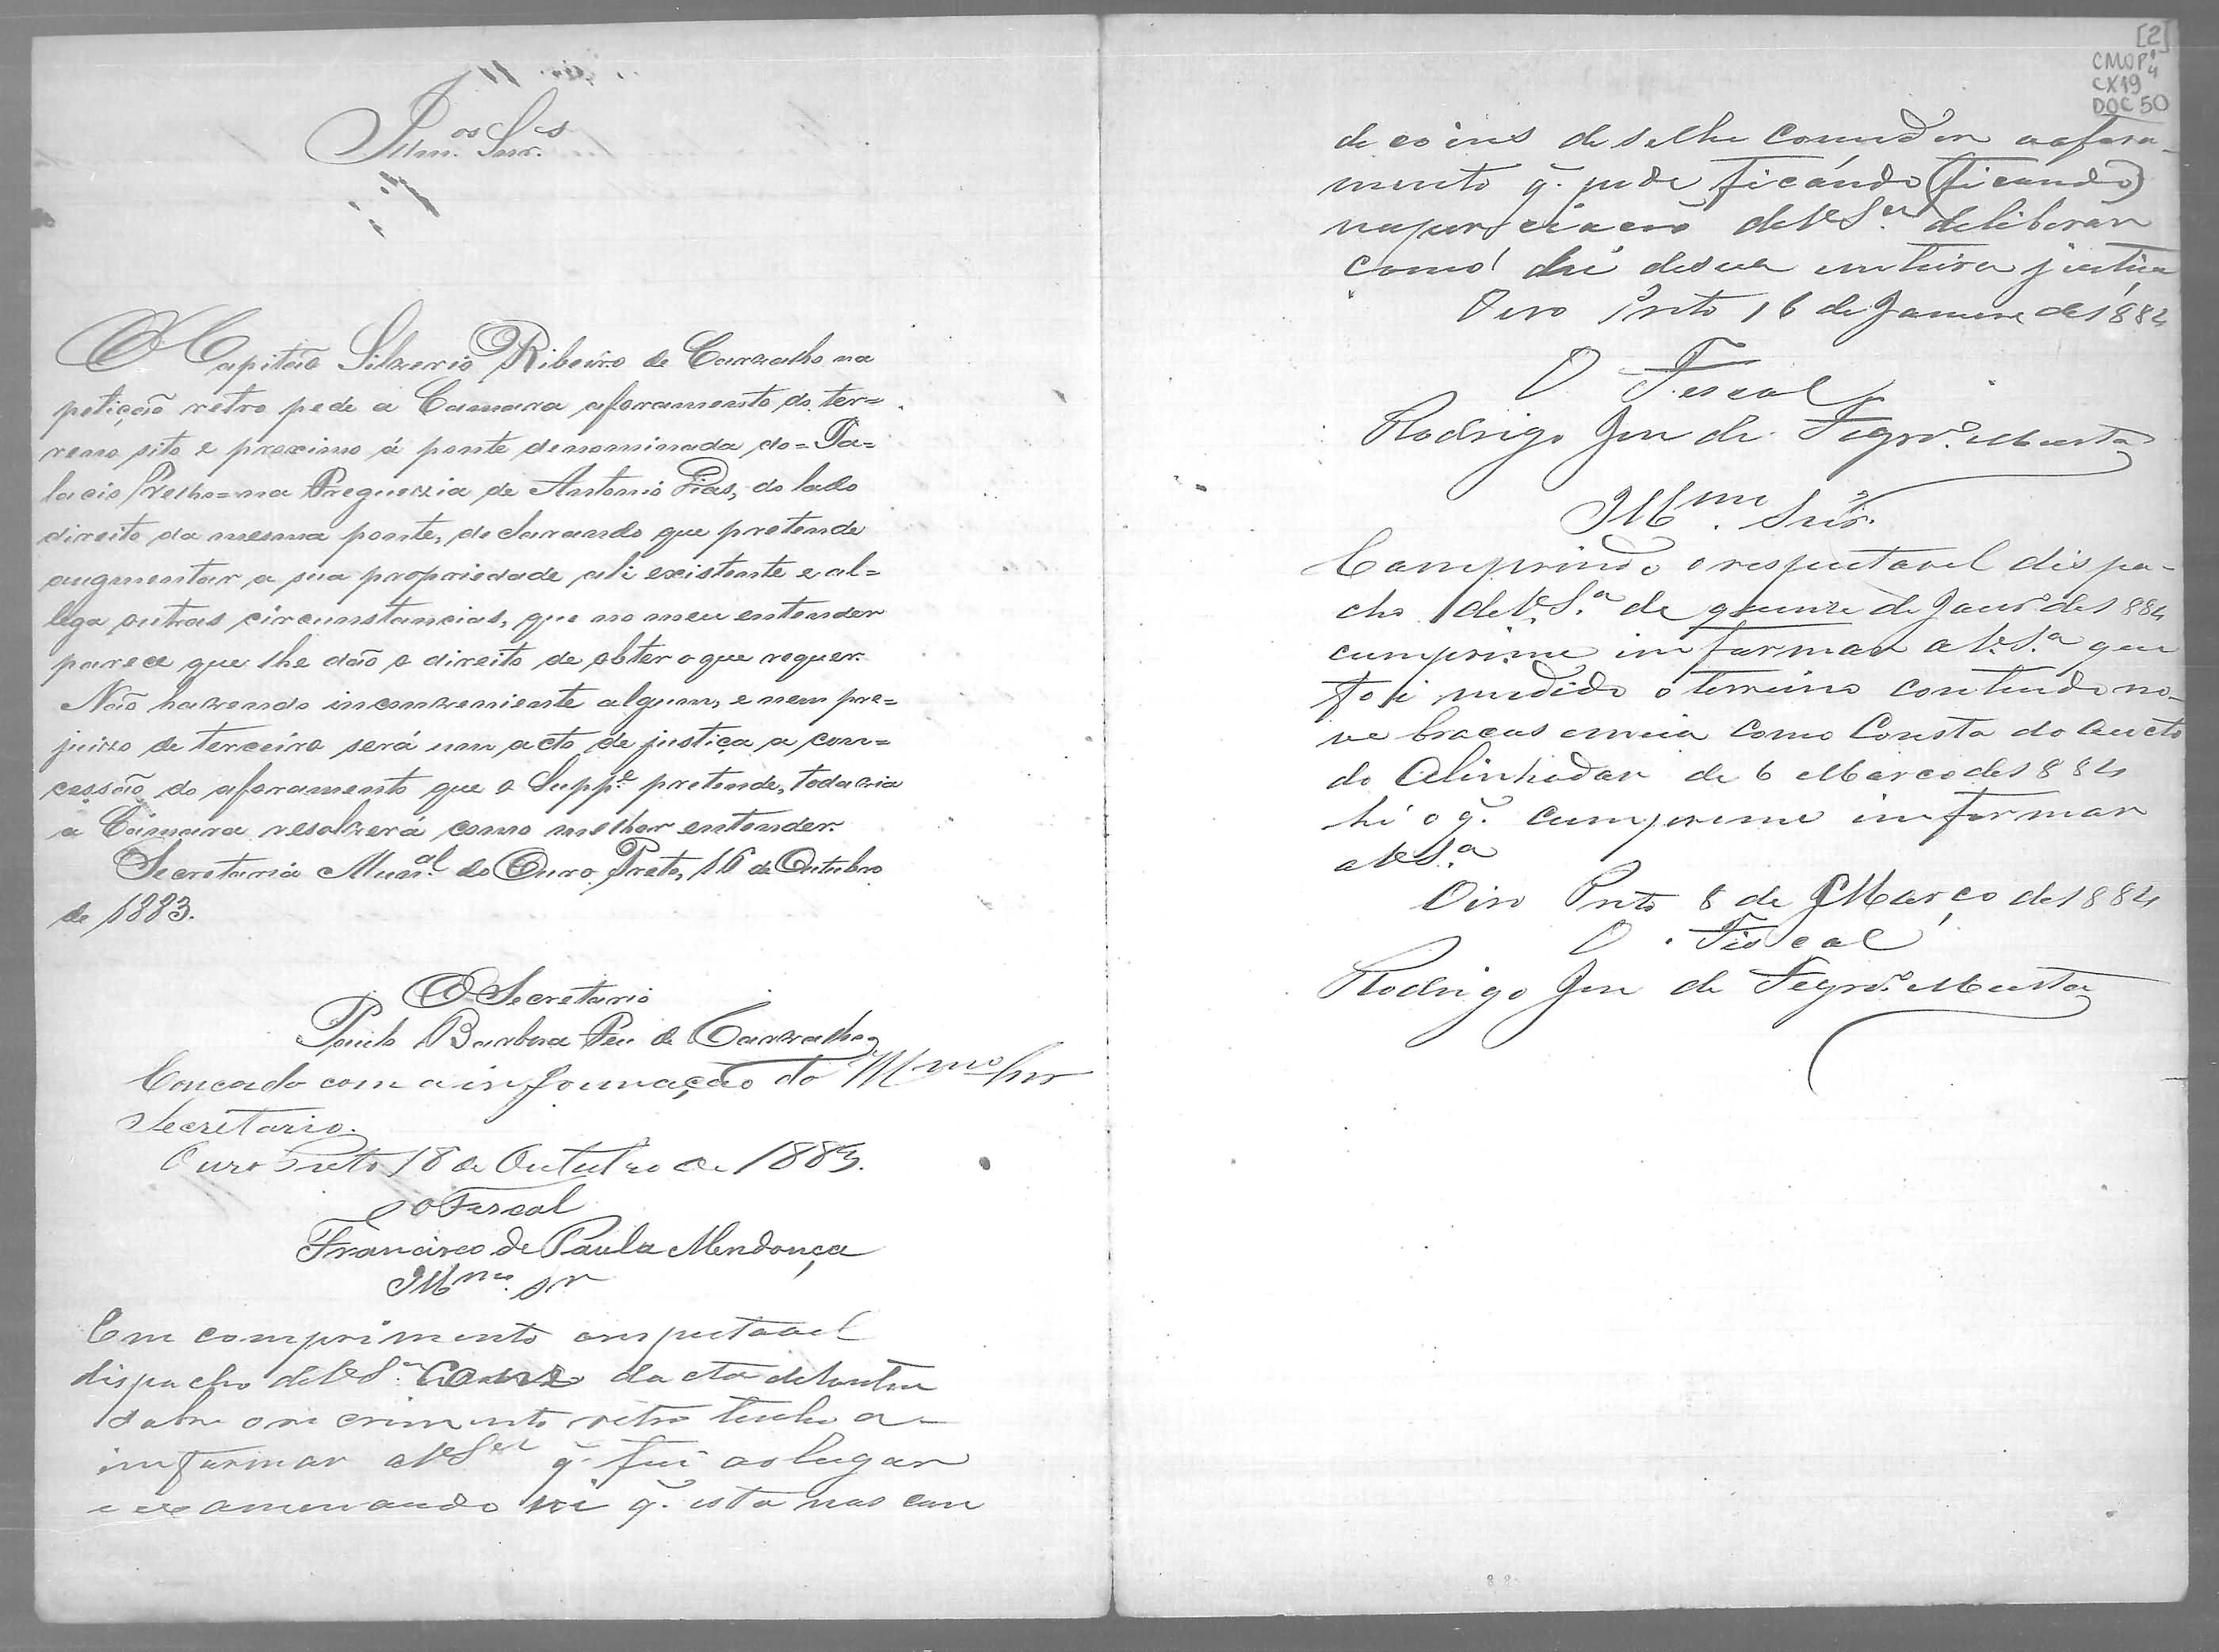 Illm.os Snr.es
O Capitão Silverio Ribeiro de Carvalho na
petição retro pede a Camara aforamento do ter=
reno sito e proximo á ponte denominada do=Pa=
lacio Velho=na Freguezia de Antonio Dias, do lado
direito da mesma ponte, declarando que pretende
augmentar a sua propriedade ali existente e al=
lega outras circunstancias, que no meu entender
parece que lhe dão o direito de obter o que requer.
Não havendo inconveniente algum, e nem pre=
juizo de terceiro será um acto de justiça a con=
cessão do aforamento que o Supp.e pretende, todavia
a Câmara resolverá como melhor entender.
Secretaria Mun.al do Ouro Preto, 16 de Outubro
de 1883.
O Secretario
Paulo Barbosa de Carvalho
Concordo com a informação do Illmo Snr
Secretario.
Ouro Preto 18 de Outubro de 1883.
O Fiscal
Francisco de Paula Mendonça
Illmo. Sr
Em comprimento orespeitavel
dispacho deVS.a com dacta
sobre o retro tenho a
informar aVS.a q. fui ao lugar
e examenando vi q. esta nas con
[2]
CMOP
CX19
DOC 50
de coins deselhe conceder oafora-
mento q. pede ficándo (ficando)
deVS.a deliberar
como hé desua inteira justiça
Oiro Preto 16 de Janeiro de 1884
O Fiscal
Rodrigo Jose de Figrd.o Murta
Illmo. Snr.
Comprindo orespeitavel dispa-
cho deVS.a de quinze de Janr.o de 1884
cumprime informar aVS.a que
foi medido oterreino contendo no-
ve bracas emeia como Consta do aucto
do Alinhador de 6 Marco de 1884
hé o q. cumprime informar
aVS.a
Oiro Preto 8 de Março de 1884
O Fiscal
Rodrigo Jose de Figrd.o Murta